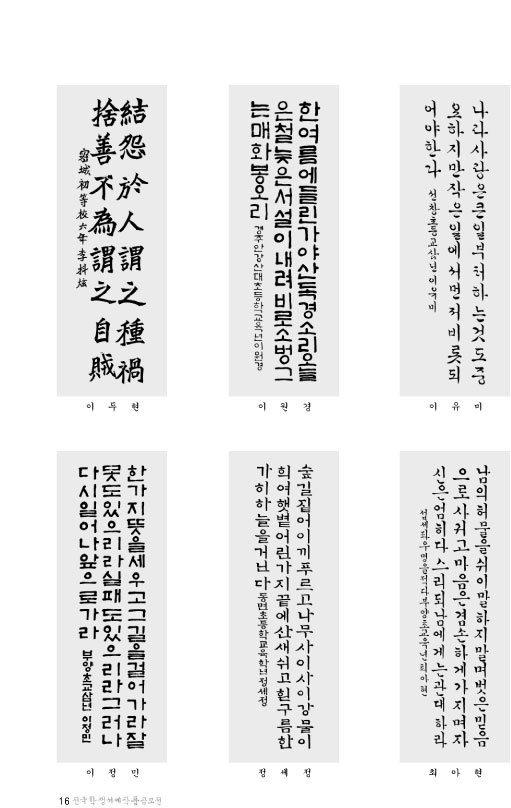 結怨於人謂之種禍
捨善不為謂之自賊
密城初等校六年 李科炫
이두현
한여름에들린가야산독경소리오늘
은철늦은서설이내려비로소벙그
는매화봉오리
이원경
나라사랑은큰일부터하는것도중
요하지만작은일에서먼저비롯되
어야한다
이유미
한가지뜻을세우고그길을걸어가라잘
못도있으리라실패도있으리라그러나
다시일어나앞으로가라 부양초교삼년 이정민
이정민
숲길짙어이끼푸르고나무사이사이강물이
희여햇볕어린가지끝에산새쉬고흰구름한
가히하늘을거닌다 동면초등학교육학년정세정
정세정
남의허물을쉬이말하지말며벗은믿음
으로사귀고마음은겸손하게가지며자
신은엄히다스리되남에게는관대하라
최아현
16